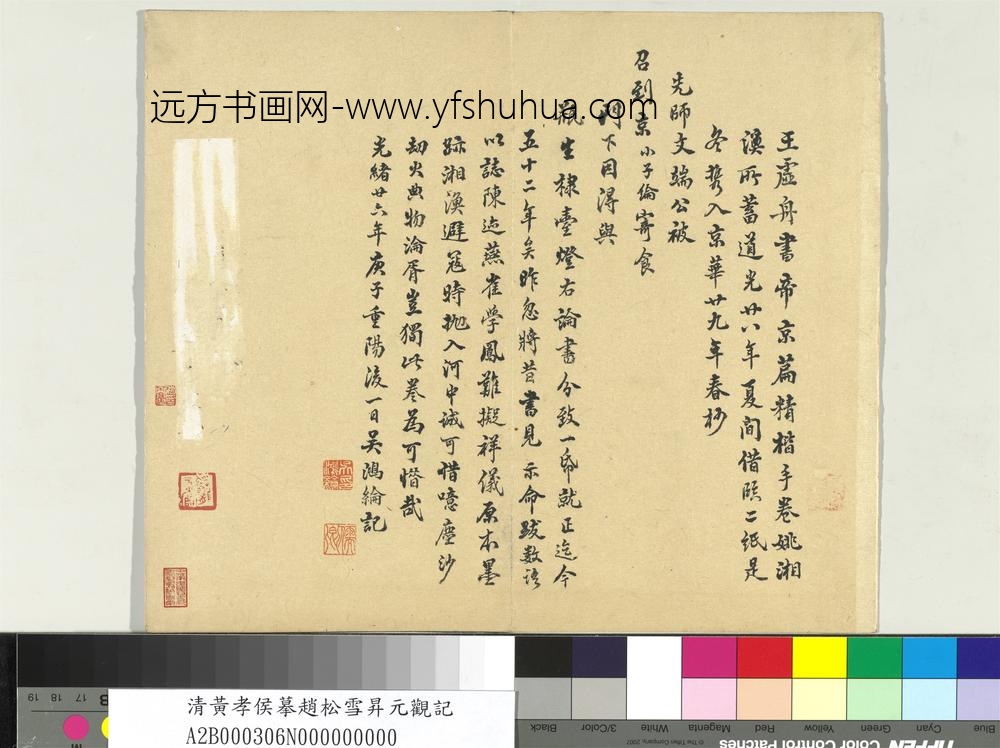 王虛舟書帝京篇精楷手卷姚湘
漢所蓄道光廿八年夏間借臨二紙是
冬攜入京華廿九年春杪
先師文端公被
召到京小子倫寄食
門下因得與
瓶生棣臺燈右論書分致一帋就正迄今
五十二年矣昨忽將昔書見示命跋數語
以誌陳迹燕雀學鳳難擬祥儀原本墨
跡湘漢避寇時拋入河中誠可惜噫塵沙
劫火典物淪胥豈獨此卷為可惜哉
光緒廿六年庚子重陽後一日吳鴻綸記
远方书画网-www.yfshuhua.com
清黃孝侯摹趙松雪昇元觀記
A2B000306N000000000
Black
3/Color
White
Magenta
Red
Yellow
Green
Cyan
Blue
19 18 17
B
M
© The Tiffen Company, 2007
Color Control Patches